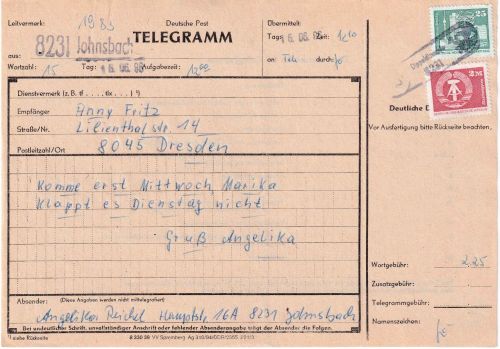 Leitvermerk: 1985
Deutsche Post
TELEGRAMM
Übermittelt:
8231 Johnsbach
Tag: 16.06. Zeit: 1210
aus:
an: Tel. durch:
Wortzahl: 15 Tag: 16.06.85 Aufgabezeit: 1200
Dienstvermerk (z. B. tf ...., tlx ....) ¹)
Empfänger Anny Fritz
Straße/Nr. Lilienthalstr. 14
Postleitzahl/Ort 8045 Dresden
Komme erst Mittwoch, Marika
klappt es Dienstag nicht
Gruß Angelika
Absender: (Diese Angaben werden nicht mittelegrafiert)
Angelika Reichel Hauptstr. 16A 8231 Johnsbach
Bei undeutlicher Schrift, unvollständiger Anschrift oder fehlender Absenderangabe trägt der Absender die Folgen.
¹) siehe Rückseite
8 230 39 VV Spremberg Ag 310/84/DDR/2355
25
DDR
8231
2 M
Deutsche
Vor Ausfertigung bitte Rückseite beachten.
Wortgebühr: 2,25
Zusatzgebühr:
Telegrammgebühr:
Namenszeichen: